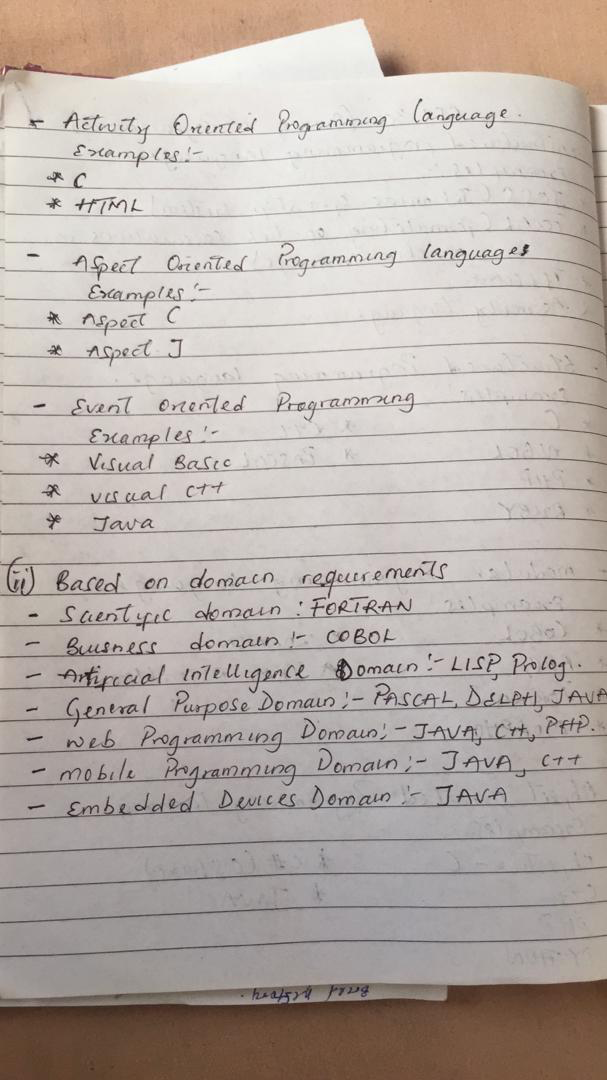 - Activity Oriented Programming Language.
Examples:-
* C
* HTML
- Aspect Oriented Programming languages
Examples:-
* Aspect C
* Aspect J
- Event oriented Programming
Examples:-
* Visual Basic
* visual C++
* Java
(ii) Based on domain requirements
- Scientific domain: FORTRAN
- Buisness domain:- COBOL
- Artificial Intelligence Domain:- LISP, Prolog.
- General Purpose Domain:- PASCAL, DELPHI, JAVA
- Web Programming Domain:- JAVA, C++, PHP.
- mobile Programming Domain:- JAVA, C++
- Embedded Devices Domain:- JAVA